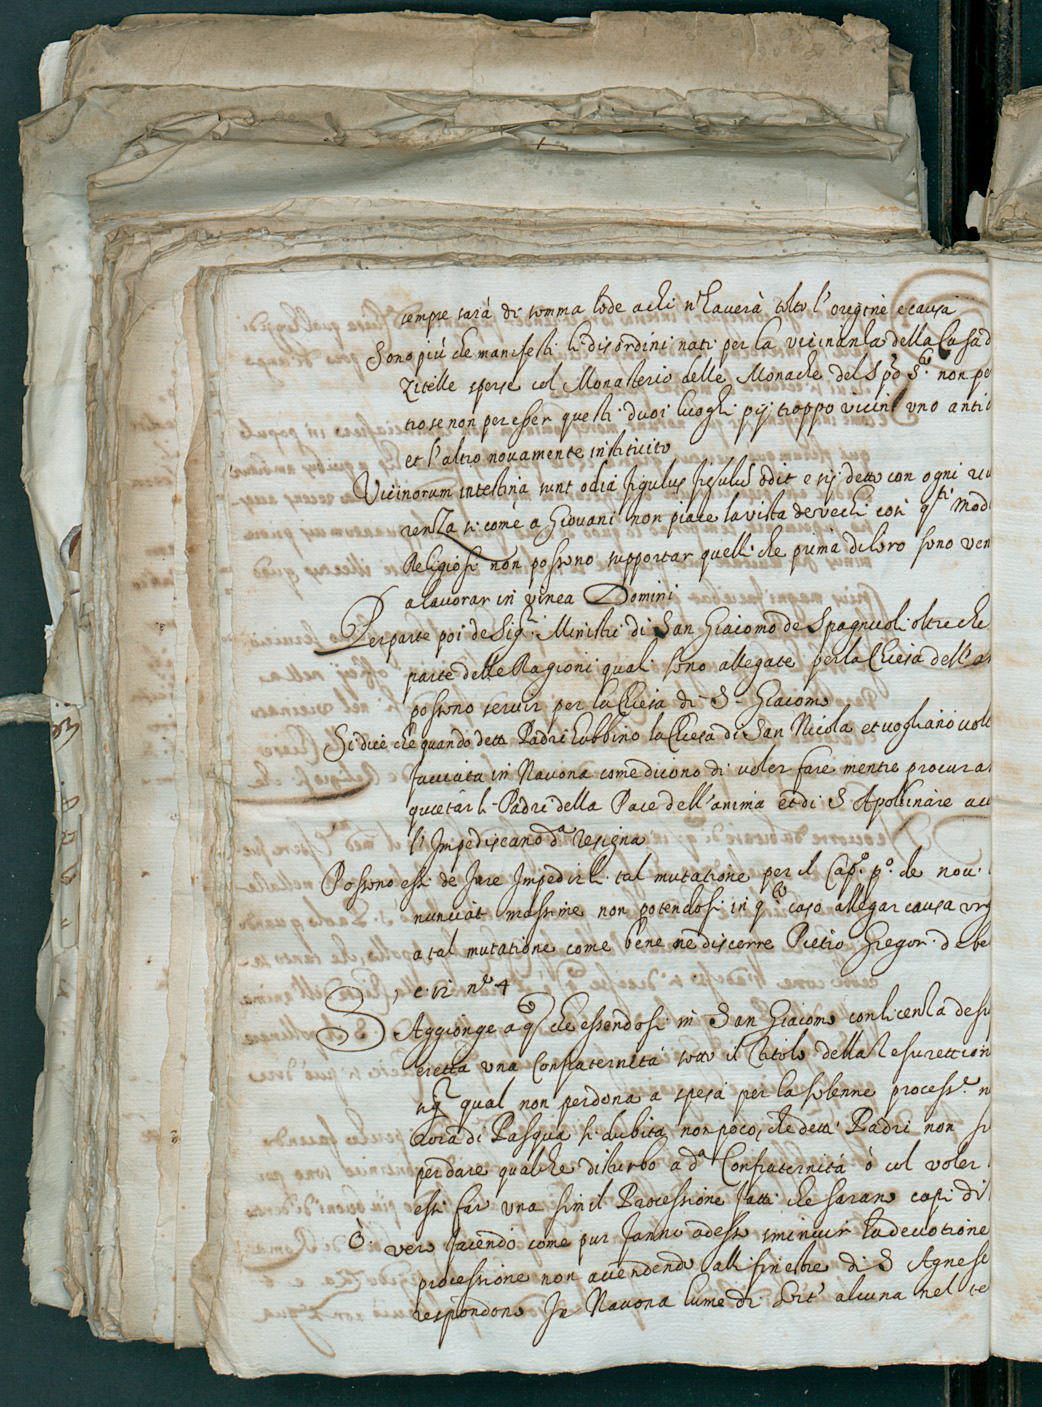 sempre sarà di somma lode a chi n'haverà tolto l'origine e causa
Sono più che manifesti li disordini nati per la vicinanza della Casa d
Zitelle sperse col Monasterio delle Monache del Spō S.to non pe
tro se non per esser questi duoi luoghi pij troppo vicini uno antic
et l'altro novamente instituito
Vicinorum intestina sunt odia figulus figulū odit e sij detto con ogni rev
renza si come a Giovani non piace la vista de vecchi così q.sti Mod
Religiosi non possono supportar quelli che prima di loro sono ven
a lavorar in vinea Domini
Per parte poi de Sig.ri Ministri di San Giacomo de Spagnuoli oltre che
parte delle Ragioni quali sono allegate per la Chiesa dell'a
possono servir per la Chiesa di S. Giacomo
Si dice che quando detti Padri habbino la Chiesa di San Nicola et vogliano volt
facciata in Navona come dicono di voler fare mentre procura
quietar li Padri della Pace dell'anima et di S Apollinare acc
l'Impediscano d.a resigna
Possono essi de Jure Impedirli tal mutatione per il Cap.o p.o de nov.
nunciat. massime non potendosi in q.to caso allegar causa urg
a tal mutatione come bene ne discerre Pietro Gregor. de be
c. 12 n.o 4
S Aggionge a q.to che essendosi in San Giacomo con licenza de su
eretta una Confraternità sotto il titolo della Resurettion
qual non perdona a spesa per la solenne process.e n
di Pasqua si dubita non poco, che detti Padri non
per dare qualche disturbo a d.a Confraternità ò col voler
essi far una simil Processione fatti che saran capi di
ò vero facendo come pur fanno adesso sminuir la devotione
processione non accendendo alli finestre di S Agnese
respondono In Navona lume di sort' alcuna nel te